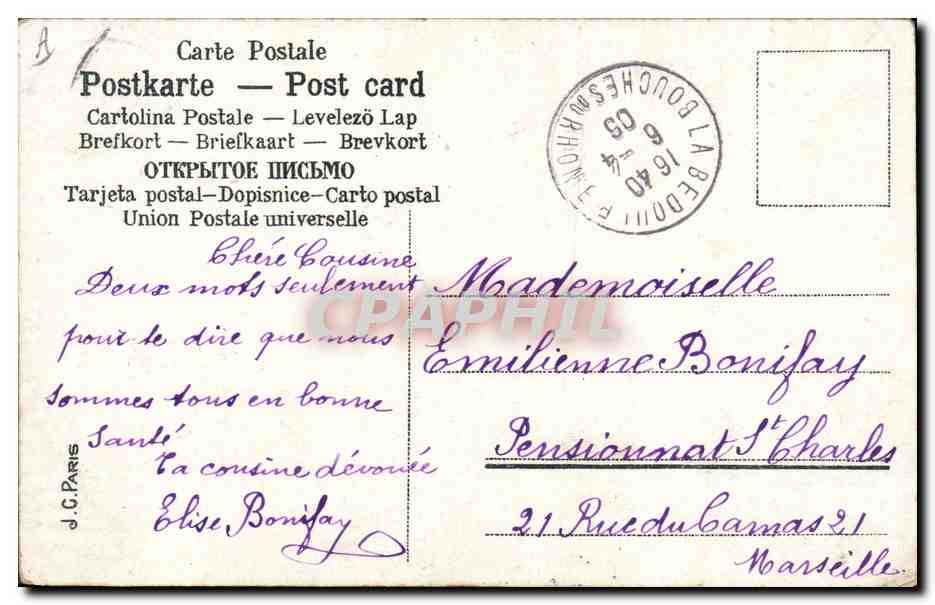 A
Carte Postale
Postkarte — Post card
Cartolina Postale — Levelező Lap
Brefkort — Briefkaart — Brevkort
ОТКРЫТОЕ ПИСЬМО
Tarjeta postal—Dopisnice—Carto postal
Union Postale universelle
LA BEDOULE
BOUCHES DU RHONE
16 40
6 -4
05
Chére Cousine
Deux mots seulement
pour te dire que nous
sommes tous en bonne
santé
Ta cousine dévouée
Elise Bonifay
Mademoiselle
Emilienne Bonifay
Pensionnat St Charles
21 Rue du Camas 21
Marseille
J.C. PARIS
CPAPHIL